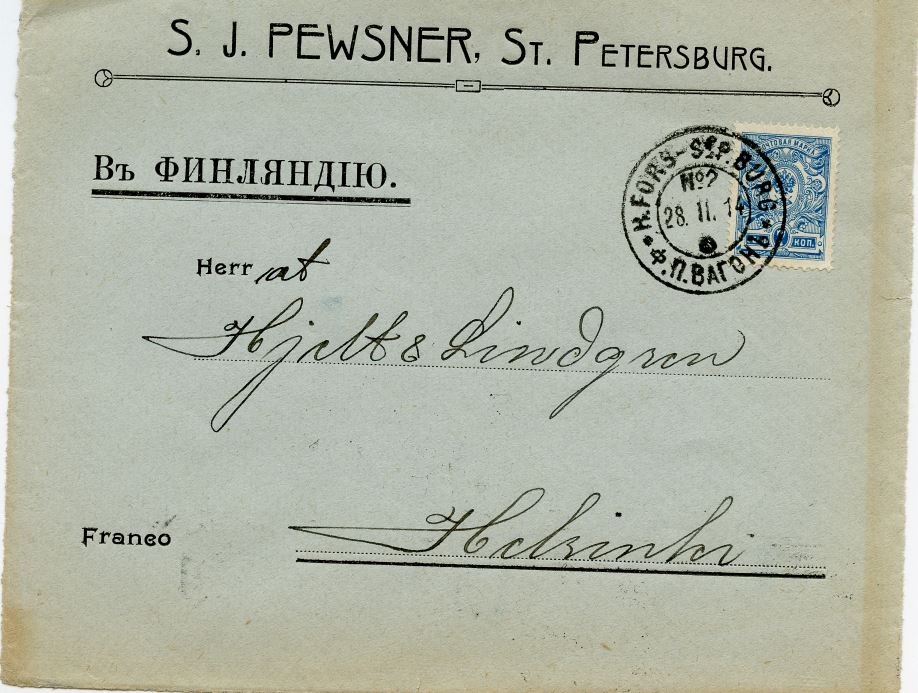 S. J. PEWSNER, ST. PETERSBURG.
Въ ФИНЛЯНДІЮ.
H.FORS-St P.BURG
№2
28.II.14
Ф.П.ВАГОНЪ
ПОЧТОВАЯ МАРКА
КОП.
Herr at
Hjelt & Lindgren
Franco
Helsinki